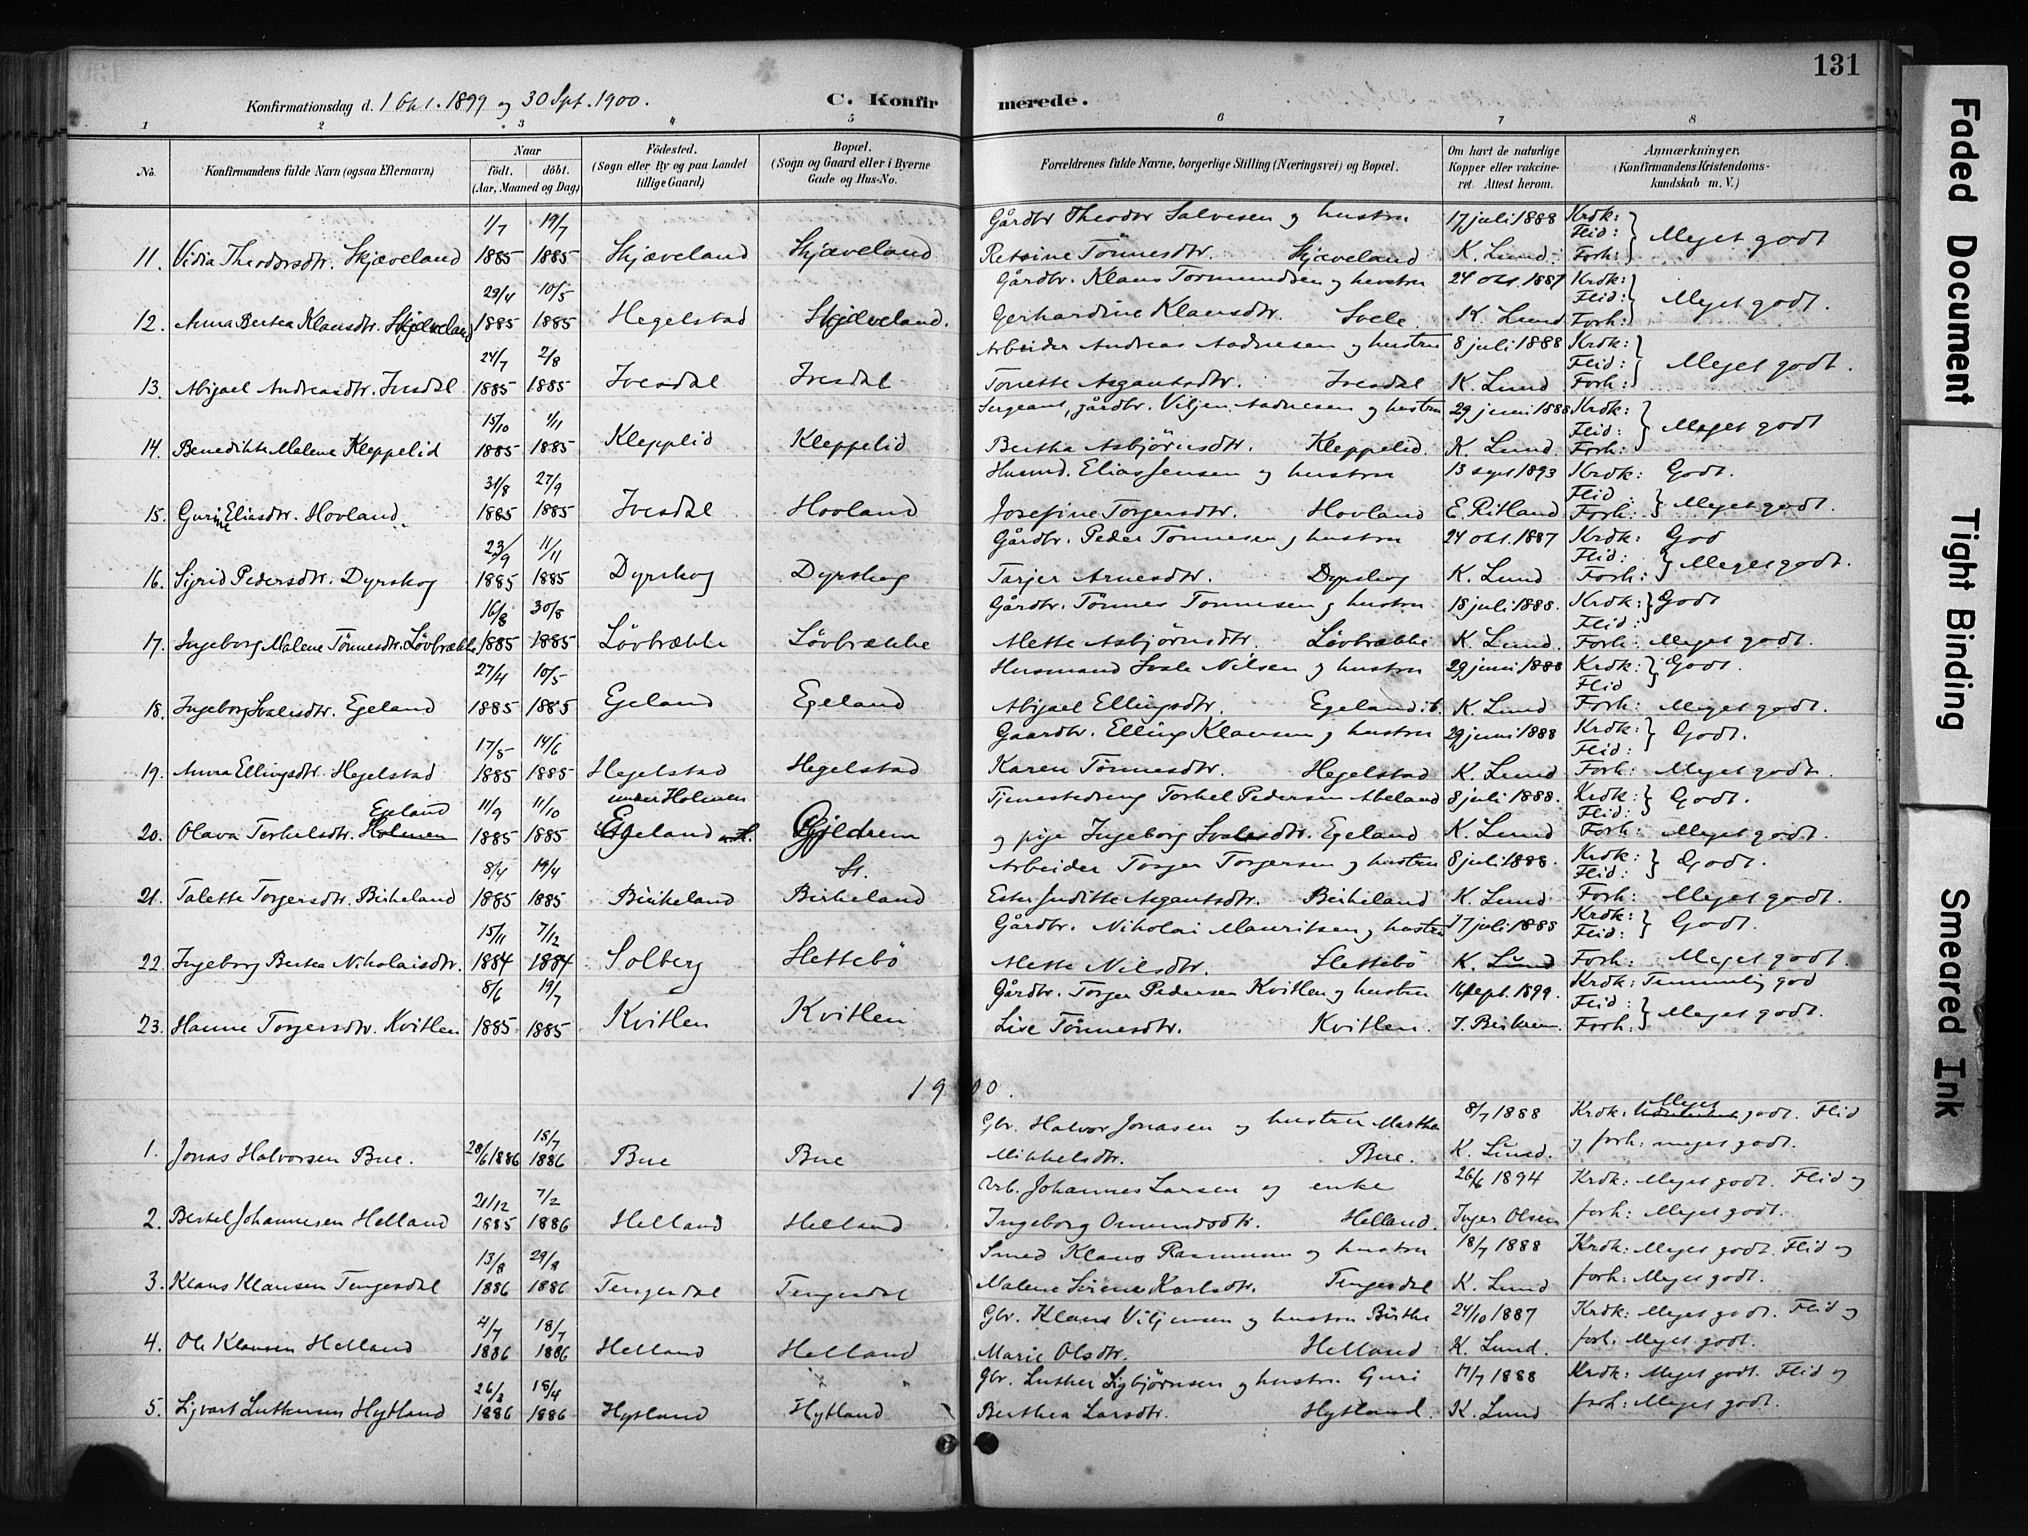 131
Konfirmationsdag d. 1 Okt. 1899 og 30 Spt. 1900. C. Konfirmerede.
1 2 3 4 5 6 7 8
No. Konfirmandens fulde Navn (ogsaa Efternavn) Naar födt. döbt. (Aar, Maaned og Dag) Födested. (Sogn eller By og paa Landet tillige Gaard) Bopæl. (Sogn og Gaard eller i Byerne Gade og Hus-No. Forældrenes fulde Navne, borgerlige Stilling (Næringsvei) og Bopæl. Om havt de naturlige Kopper eller vakcineret. Attest herom. Anmærkninger. (Konfirmandens Kristendomskundskab m. V.)
1/7 19/7 Gårdbr Theodor Salvesen og hustru 17 juli 1888 Krdk: Flid:
11. Vidia Theodorsdtr. Skjæveland 1885 1885 Skjæveland Skjæveland Tönnesdtr. Skjæveland K. Lund. Forh: Meget godt
29/4 10/5 Gårdbr. Klaus Tormundsen og hustru 24 okt. 1887 Krdk: Flid:
12. Anna Bertea Klausdtr. Skjæveland 1885 1885 Hegelstad Skjæveland. Gerhardine Klausdtr. Svele K. Lund Forh: Meget godt.
24/7 2/8 Arbeider Andreas Aadnesen og hustru 8 juli 1888 Krdk: Flid:
13. Abigael Andreasdtr. Ivesdal 1885 1885 Ivesdal Ivesdal Tonette Asgautsdtr. Ivesdal K. Lund Forh: Meget godt.
15/10 1/11 Sergeant, gårdbr. Viljen Aadnesen og hustru 29 juni 1888 Krdk: Flid:
14. Benedikte Malene Kleppelid 1885 1885 Klepplid Kleppelid Bertha Asbjörnsdtr. Kleppelid. K. Lund. Forh: Meget godt
31/8 27/9 Husmd. Elias Jensen og hustru 13 sept 1893 Krdk: Godt.
15. Gurine Eliasdtr. Hovland. 1885 1885 Ivesdal Hovland Josefine Torgersdtr. Hovland E. Ritland Flid: Forh: Meget godt.
23/9 11/11 Gårdbr. Peder Tönnesen og hustru 24 okt. 1887 Krdk: God
16. Sigrid Pedersdtr. Dyrskog 1885 1885 Dyrskog Dyrskog Tarjer Arnesdtr. Dyrskog K. Lund Flid: Forh: Meget godt.
16/8 30/8 Gårdbr. Tönnes Tönnesen og hustru 18 juli 1888. Krdk: Flid: Godt
17. Ingeborg Malene Tönnesdtr. Lövbrække 1885 1885 Lövbrække Lövbrække Mette Asbjörnsdtr. Lövbrække K. Lund. Forh: Meget godt.
27/4 10/5 Husmand Svale Nilsen og hustru 29 juni 1888 Krdk: Flid Godt.
18. Ingeborg Svalesdtr. Egeland 1885 1885 Egeland Egeland Abigael Ellingsdtr. Egeland i.b. K. Lund Forh: Meget godt.
17/5 14/6 Gaardbr. Elling Klausen og hustru 29 juni 1888 Krdk: Flid: Godt.
19. Anna Ellingsdtr. Hegelstad 1885 1885 Hegelstad Hegelstad Karen Tönnesdtr. Hegelstad K. Lund Forh: Meget godt.
Egeland 11/9 11/10 under Holmen Tjenestedreng Torkel Pedersen Abeland 8 juli 1888. Krdk: Flid: Godt.
20. Olava Terkelsdtr. Holmen 1885 1885 Egeland Gjeldrem og pige Ingeborg Svalesdtr. Egeland K. Lund Forh: Meget godt.
8/4 19/4 St. Arbeider Torger Torgersen og hustru 8 juli 1888. Krdk: Flid: Godt.
21. Talette Torgersdtr. Birkeland 1885 1885 Birkeland Birkeland Ester Juditte Asgautsdtr. Birkeland K. Lund Forh: Meget godt.
15/11 7/12 Gårdbr. Nikolai Mauritsen og hustru 17 juli 1885 Krdk: Flid: Godt.
22. Ingeborg Bertea Nikolaisdtr. 1884 1884 Solberg Slettebö Mette Nilsdtr. Slettebö K. Lund Forh: Meget godt.
8/6 19/7 Gårdbr. Torger Pedersen Kvitlen og hustru 16 sept. 1899. Krdk: Temmelig god
23. Hanne Torgersdtr. Kvitlen 1885 1885 Kvitlen Kvitlen Live Tönnesdtr. Kvitlen. Flid: Forh: Meget godt.
1900.
15/7 Gbr. Halvor Jonassen og hustru Marthe 8/7 1888 Krdk: Meget godt. Flid
1. Jonas Halvorsen Bue. 28/6 1886 1886 Bue Bue Mikkelsdtr. Bue. K. Lund. og forh: meget godt.
21/12 7/2 Johannes Larsen og enke 26/6 1894 Krdk: Meget godt. Flid og
2. Bertel Johannesen Helland 1885 1886 Helland Helland Ingeborg Omundsdtr. Helland. Inger Olsen forh: Meget godt.
13/8 29/8 Smed Klaus Rasmussen og hustru 18/7 1888 Krdk: Meget godt. Flid og
3. Klaus Klausen Tengesdal 1886 1886 Tengesdal Tengesdal Malene Sirene Karlsdtr. Tengesdal K. Lund forh: Meget godt.
4/7 18/7 Gbr. Klaus Viljensen og hustru Birthe 24/10 1887 Krdk: Meget godt. Flid og
4. Ole Klausen Helland 1886 1886 Helland Helland Marie Olsdtr. Helland K. Lund. forh. Meget godt.
26/3 18/4 Gbr. Luther Sigbjörnsen og hustru Guri 17/7 1888 Krdk: Meget godt. Flid og
5. Sigvart Luthersen Hytland 1886 1886 Hytland Hytland Berthea Larsdtr. Hytland. K. Lund forh: Meget godt.
Faded Document
Tight Binding
Smeared Ink